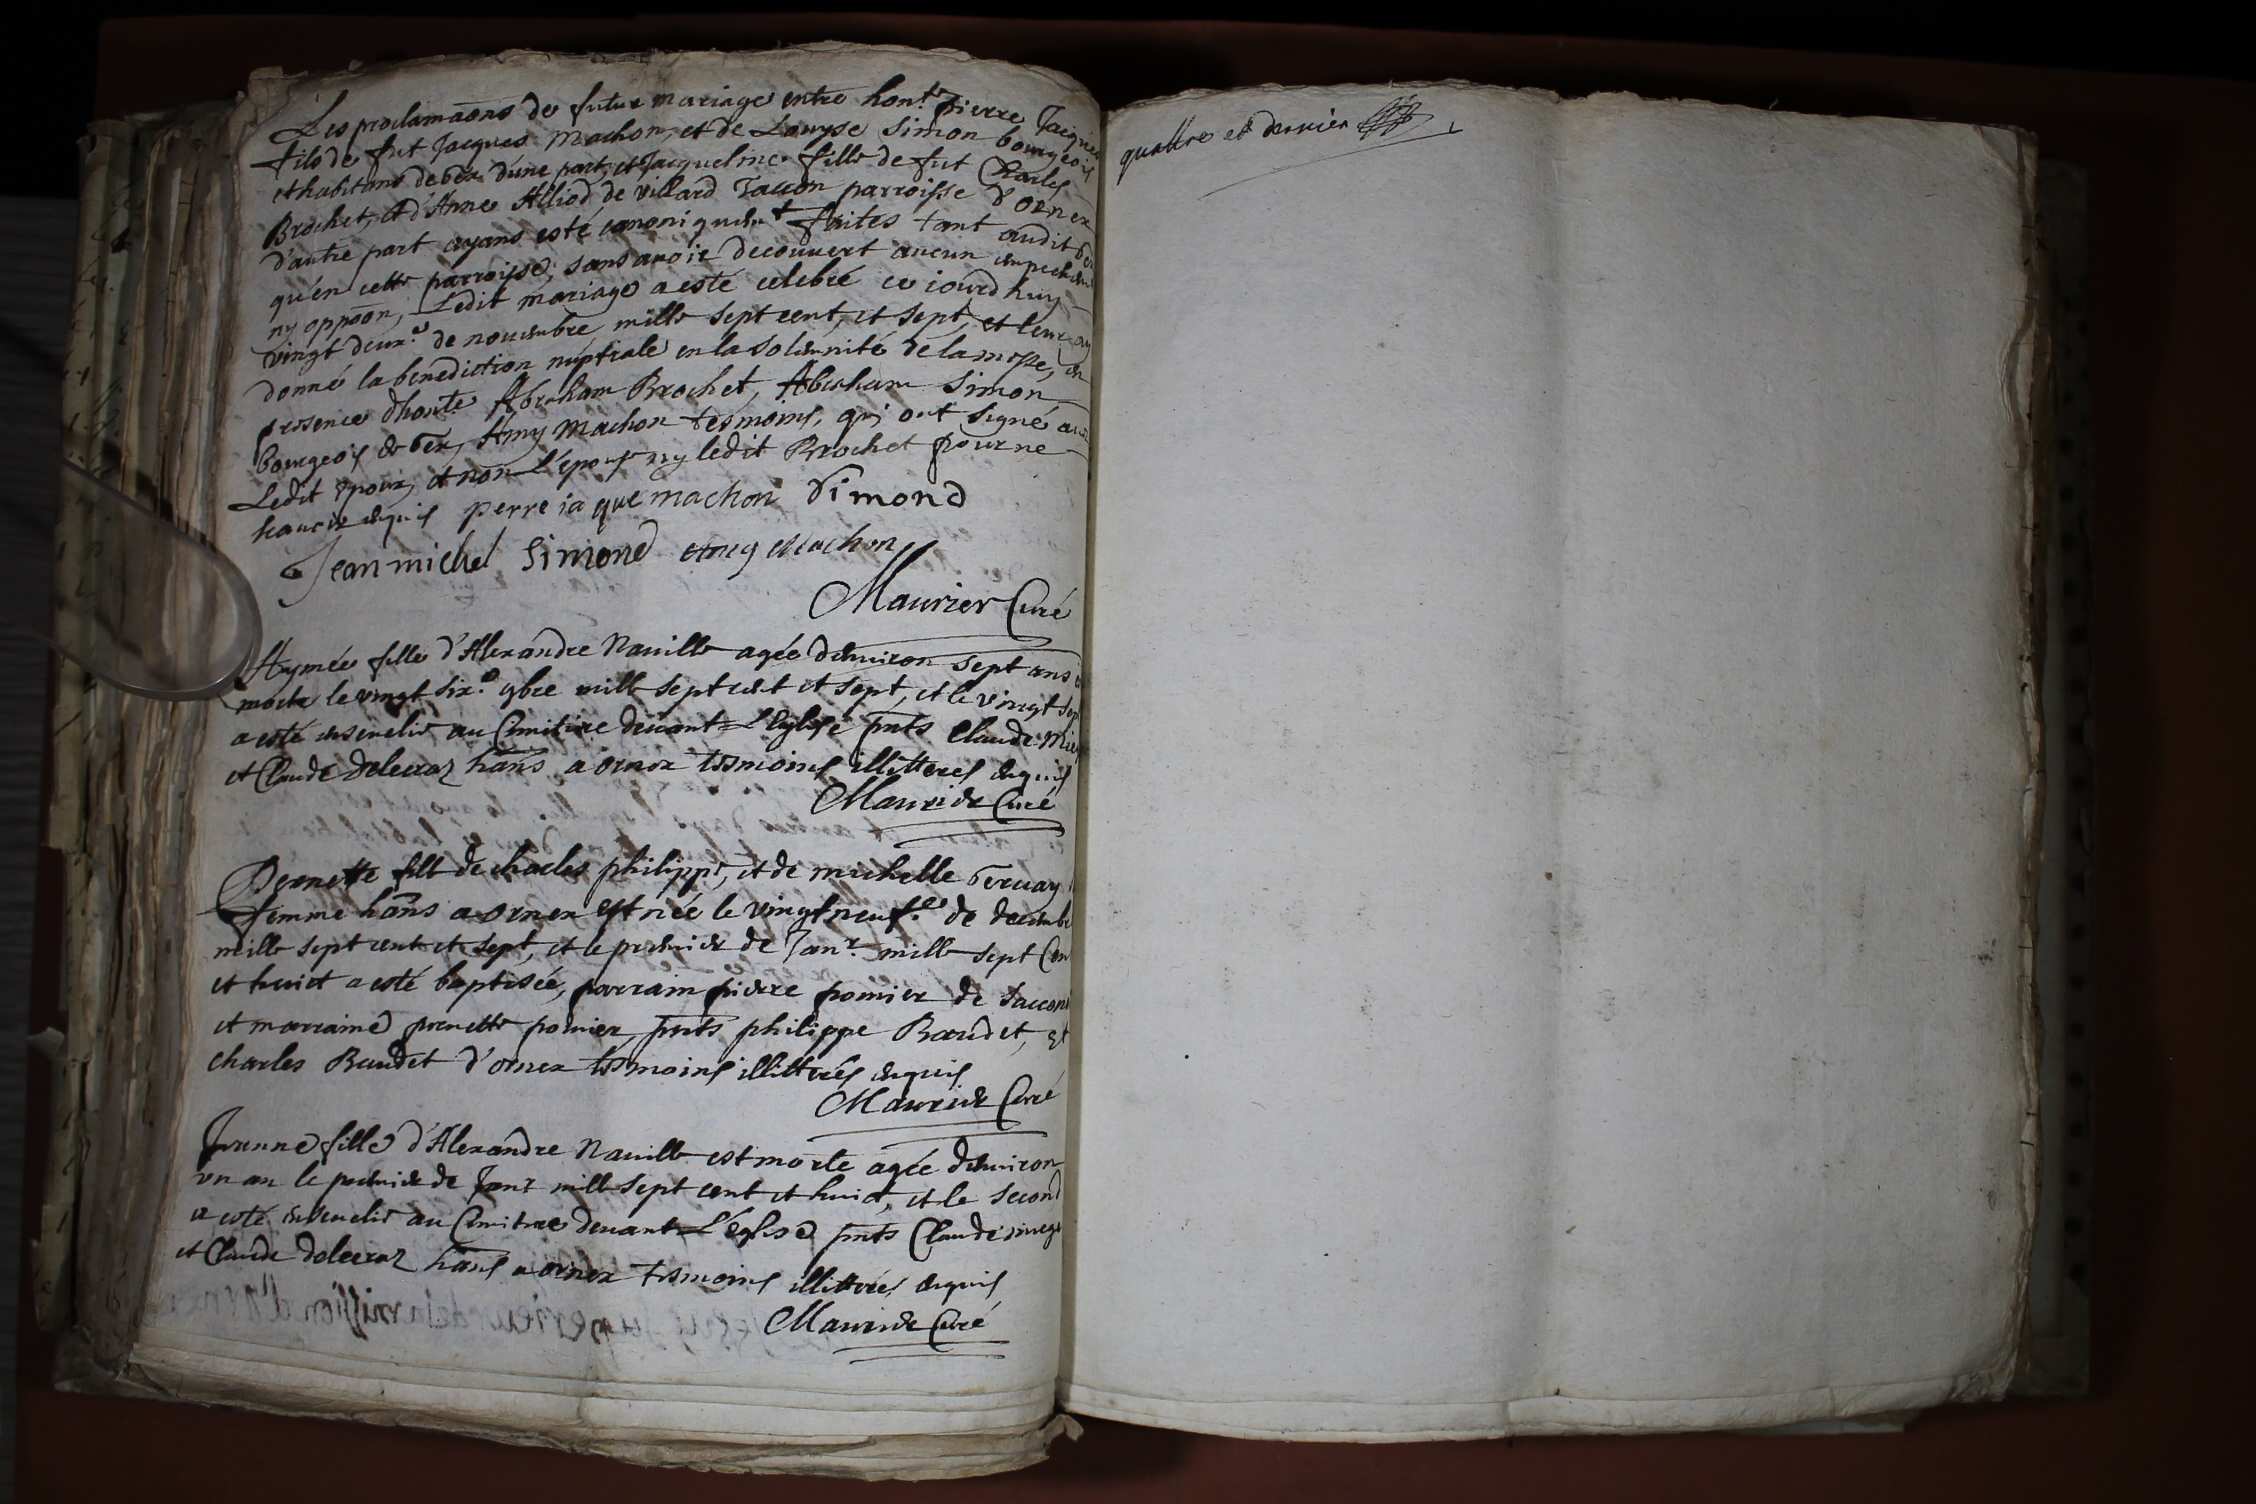 Les proclamaõns de futur mariage entre hon.te pierre Jacques
fils de fut Jacques Machon, et de Louyse Simon bourgeois
et habitans de Gex d'une part, et Jacqueline fille de fut Charles
Brochet, et d'Anne Alliod de Villard Taccon parroisse d'ornex
d'autre part ayans esté canoniquem.t faites tant audit Gex
qu'en cette parroisse, sans avoir decouvert aucun empechem
ny oppaõn, Ledit mariage a esté celebré ce iourd'huy
vingt deux.e de novembre mille sept cent, et sept, et leur ay
donné la benediction nuptiale en la solemnité de la messe, en
presence d'honte Abraham Brochet, Abraham Simon
bourgeois de Gex, Amy Machon tesmoins, qui ont signé avec
Ledit epoux, et non L'épouse ny ledit Brochet pour ne
scavoir enquis perre ia que machon Simond
Jean michel Simond Amy Machon
Maurier Curé
Aymée fille d'Alexandre Naville agée d'environ sept ans est
morte le vingt six.e 9bre mille sept cent et sept, et le vingt sept
a esté ensevelie au Cimitire devant L'Eglise pnts Claude
et Claude delecraz hãns a ornex tesmoins illitterés enquis
Maurier Curé
Pernette fille de charles philippe, et de michelle Gervay
femme hãns a ornex est née le vingt neuf.e de decembre
mille sept cent et sept, et le premier de Jan.r mille sept Cen
et huict a esté baptisée, parrain pierre pomier de Taccon
et marraine pernette pomier, pnts philippe Baudet, et
charles Baudet d'ornex tesmoins illittérés enquis
Maurier Curé
Jeanne fille d'Alexandre Naville est morte agée d'environ
un an le premier de Janr mille sept cent et huict, et le second
a esté ensevelie au Cimitire devant L'église pnts Claude
et Claude delecraz hãns a ornex tesmoins illittérés enquis
Maurier Curé
quattre et dernier